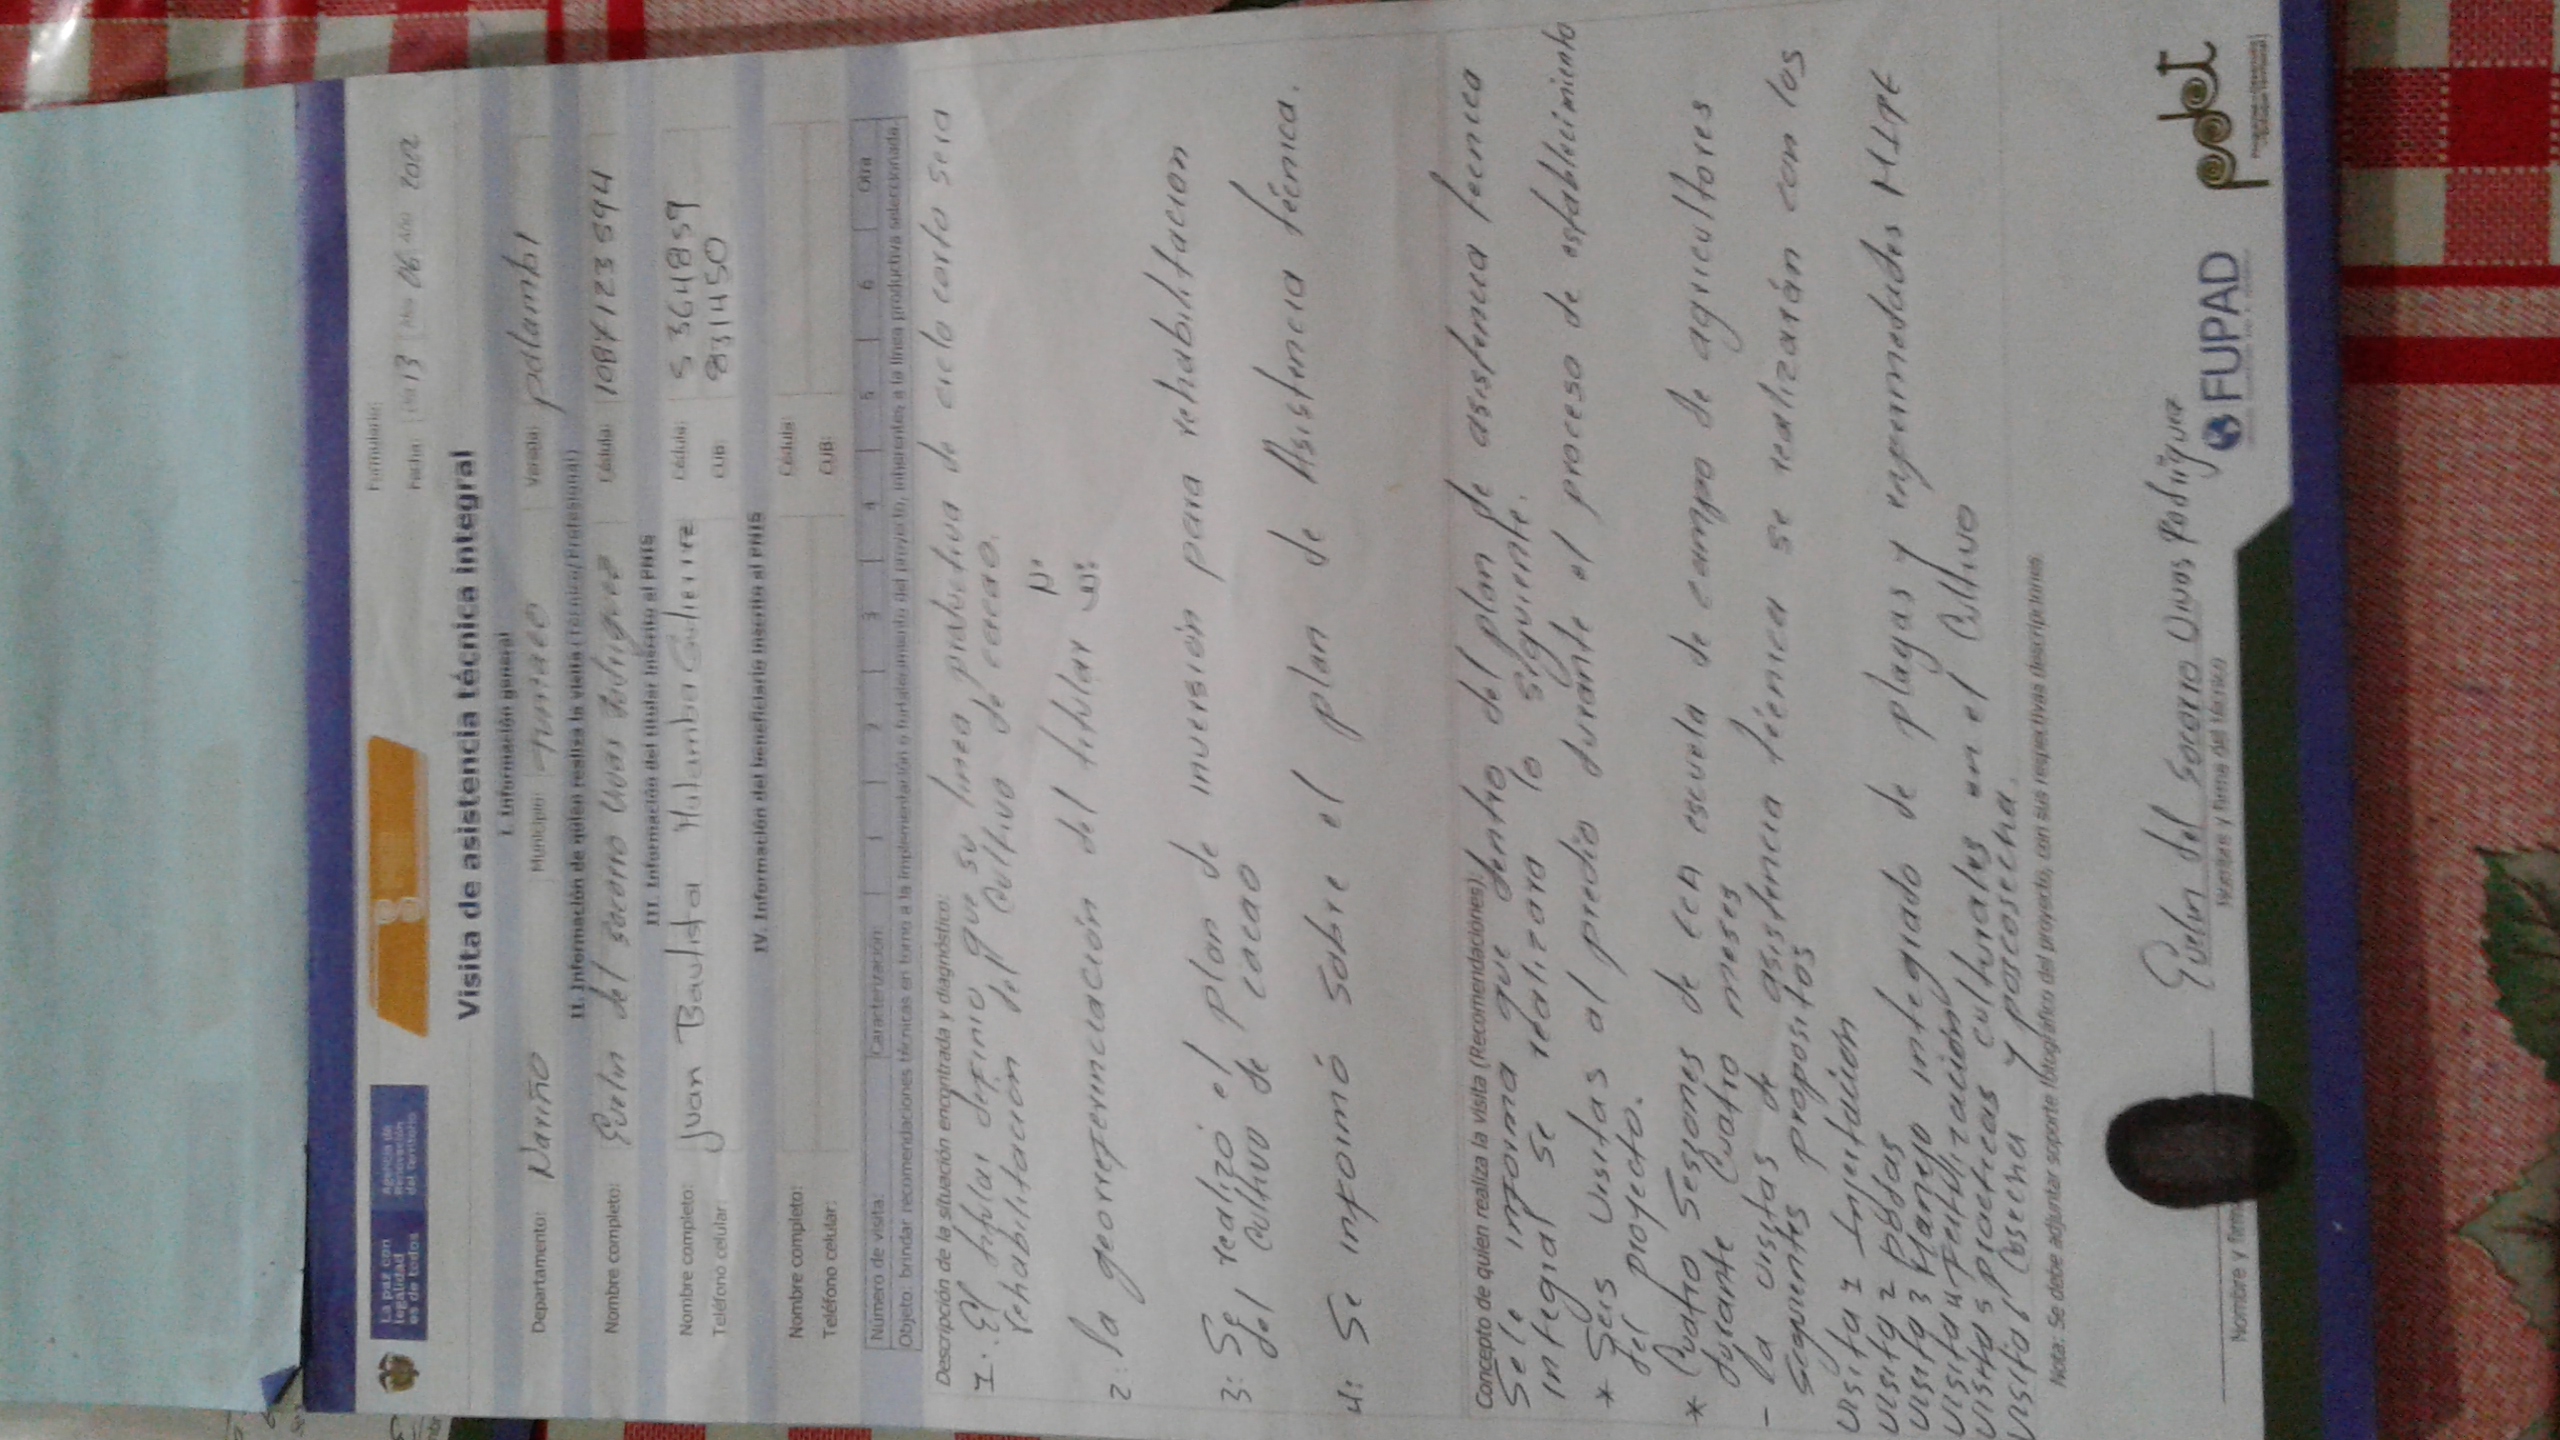 La paz con
legalidad
es de todos
Agencia de
Renovación
del Territorio
Formulario:
Fecha: Día 13 Mes 06 Año 2022
Visita de asistencia técnica integral
I. Información general
Departamento: Nariño Municipio: Tumaco Vereda: palambi
II. Información de quien realiza la visita (Técnico/Profesional)
Nombre completo: Evelin del socorro Vivas Rodriguez Cédula: 1087123594
III. Información del titular inscrito al PNIS
Nombre completo: Juan Bautista Malamba Gutierrez Cédula: 5364859
Teléfono celular: CUB: 831450
IV. Información del beneficiario inscrito al PNIS
Nombre completo: Cédula:
Teléfono celular: CUB:
Número de visita: Caracterización: 1 2 3 4 5 6 Otra
Objeto: brindar recomendaciones técnicas en torno a la implementación y fortalecimiento del proyecto, inherentes a la línea productiva seleccionada.
Descripción de la situación encontrada y diagnóstico:
1. El titular definio que su linea productiva de ciclo corto sera
rehabilitación del cultivo de cacao.
2: la georreferenciación del titular N:
W:
3: Se realizó el plan de inversión para rehabilitacion
del cultivo de cacao
4: Se informó sobre el plan de Asistencia técnica.
Concepto de quien realiza la visita (Recomendaciones):
Se le informa que dentro del plan de asistencia tecnica
integral se realizara lo siguiente.
* Seis visitas al predio durante el proceso de establecimiento
del proyecto.
* Cuatro sesiones de ECA escuela de campo de agricultores
durante cuatro meses
- la visitas de asistencia técnica se realizarán con los
siguientes propositos
visita 1 Injertación
visita 2 podas
visita 3 Manejo integrado de plagas y enfermedades MIPE
visita 4 Fertilización
visita 5 practicas culturales en el cultivo
visita 6 cosecha y poscosecha.
Nota: Se debe adjuntar soporte fotográfico del proyecto, con sus respectivas descripciones.
Evelin del socorro Vivas Rodriguez
Nombre y firma
Nombre y firma del técnico
FUPAD
PDET